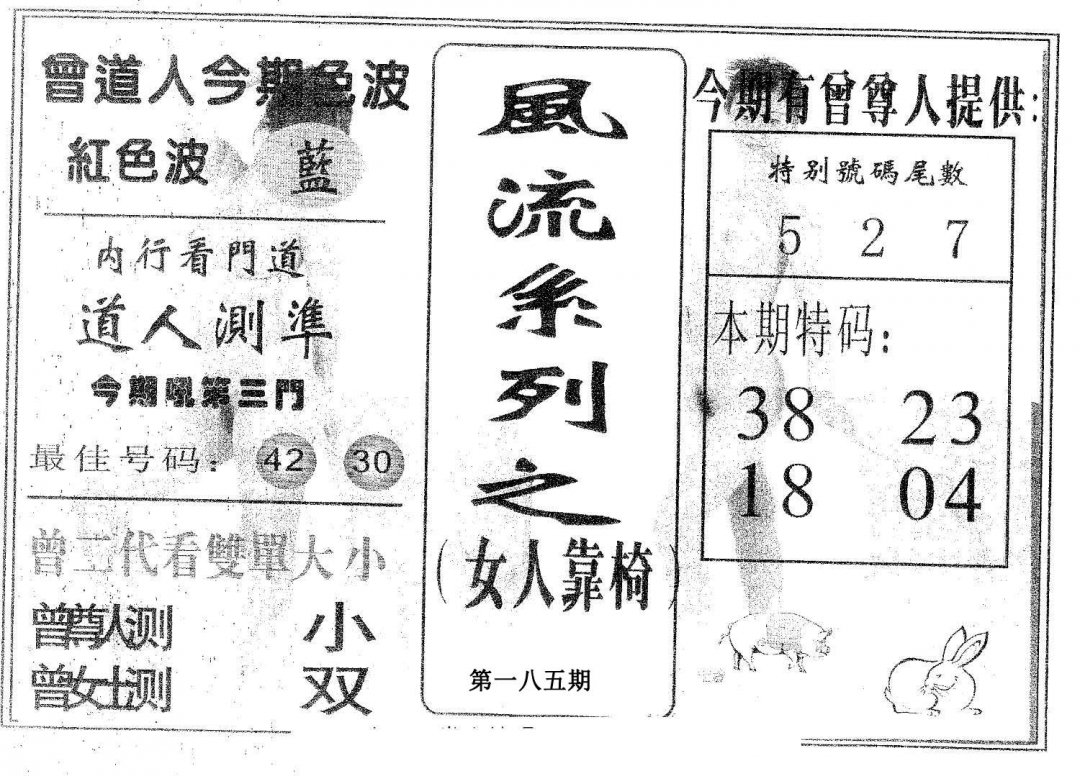 曾道人今期色波
紅色波 藍
内行看門道
道人測準
今期吼第三門
最佳号码: 42 30
曾二代看雙單大小
曾尊人测 小
曾女士测 双
風流系列之
(女人靠椅)
第一八五期
今期有曾尊人提供:
特别號碼尾數
5 2 7
本期特码:
38 23
18 04